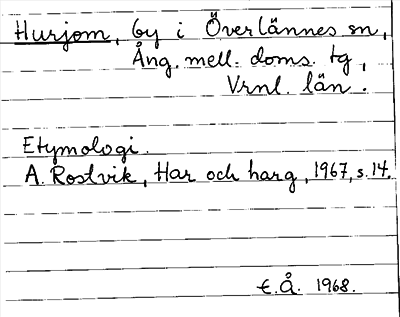 Hurjom, by i Överlännes sn,
Ång. mell. doms. tg,
Vrnl. län.
Etymologi.
A. Rostvik, Har och harg, 1967, s. 14.
E.Å. 1968.